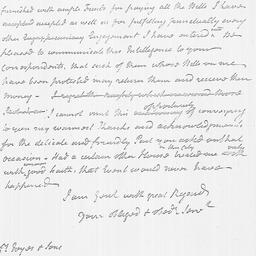 furnished with ample Funds for paying all the Bills I have
accepted as well as for fulfilling punctually every
other Engagement I have entered
pleased to communicate this Intelligence to your
Correspondents, that such of them whose Bills on me
have been protested may return them and receive their
money -
I cannot omit this of conveying
to you my warmest Thanks and acknowledgments
for the delicate and friendly Part you acted on that
occasion - Had a certain other House treated me with
with good faith, that would never have
happened
I am Gent. with great Regard
Your Obliged & Obedt. Servt.
& Sons